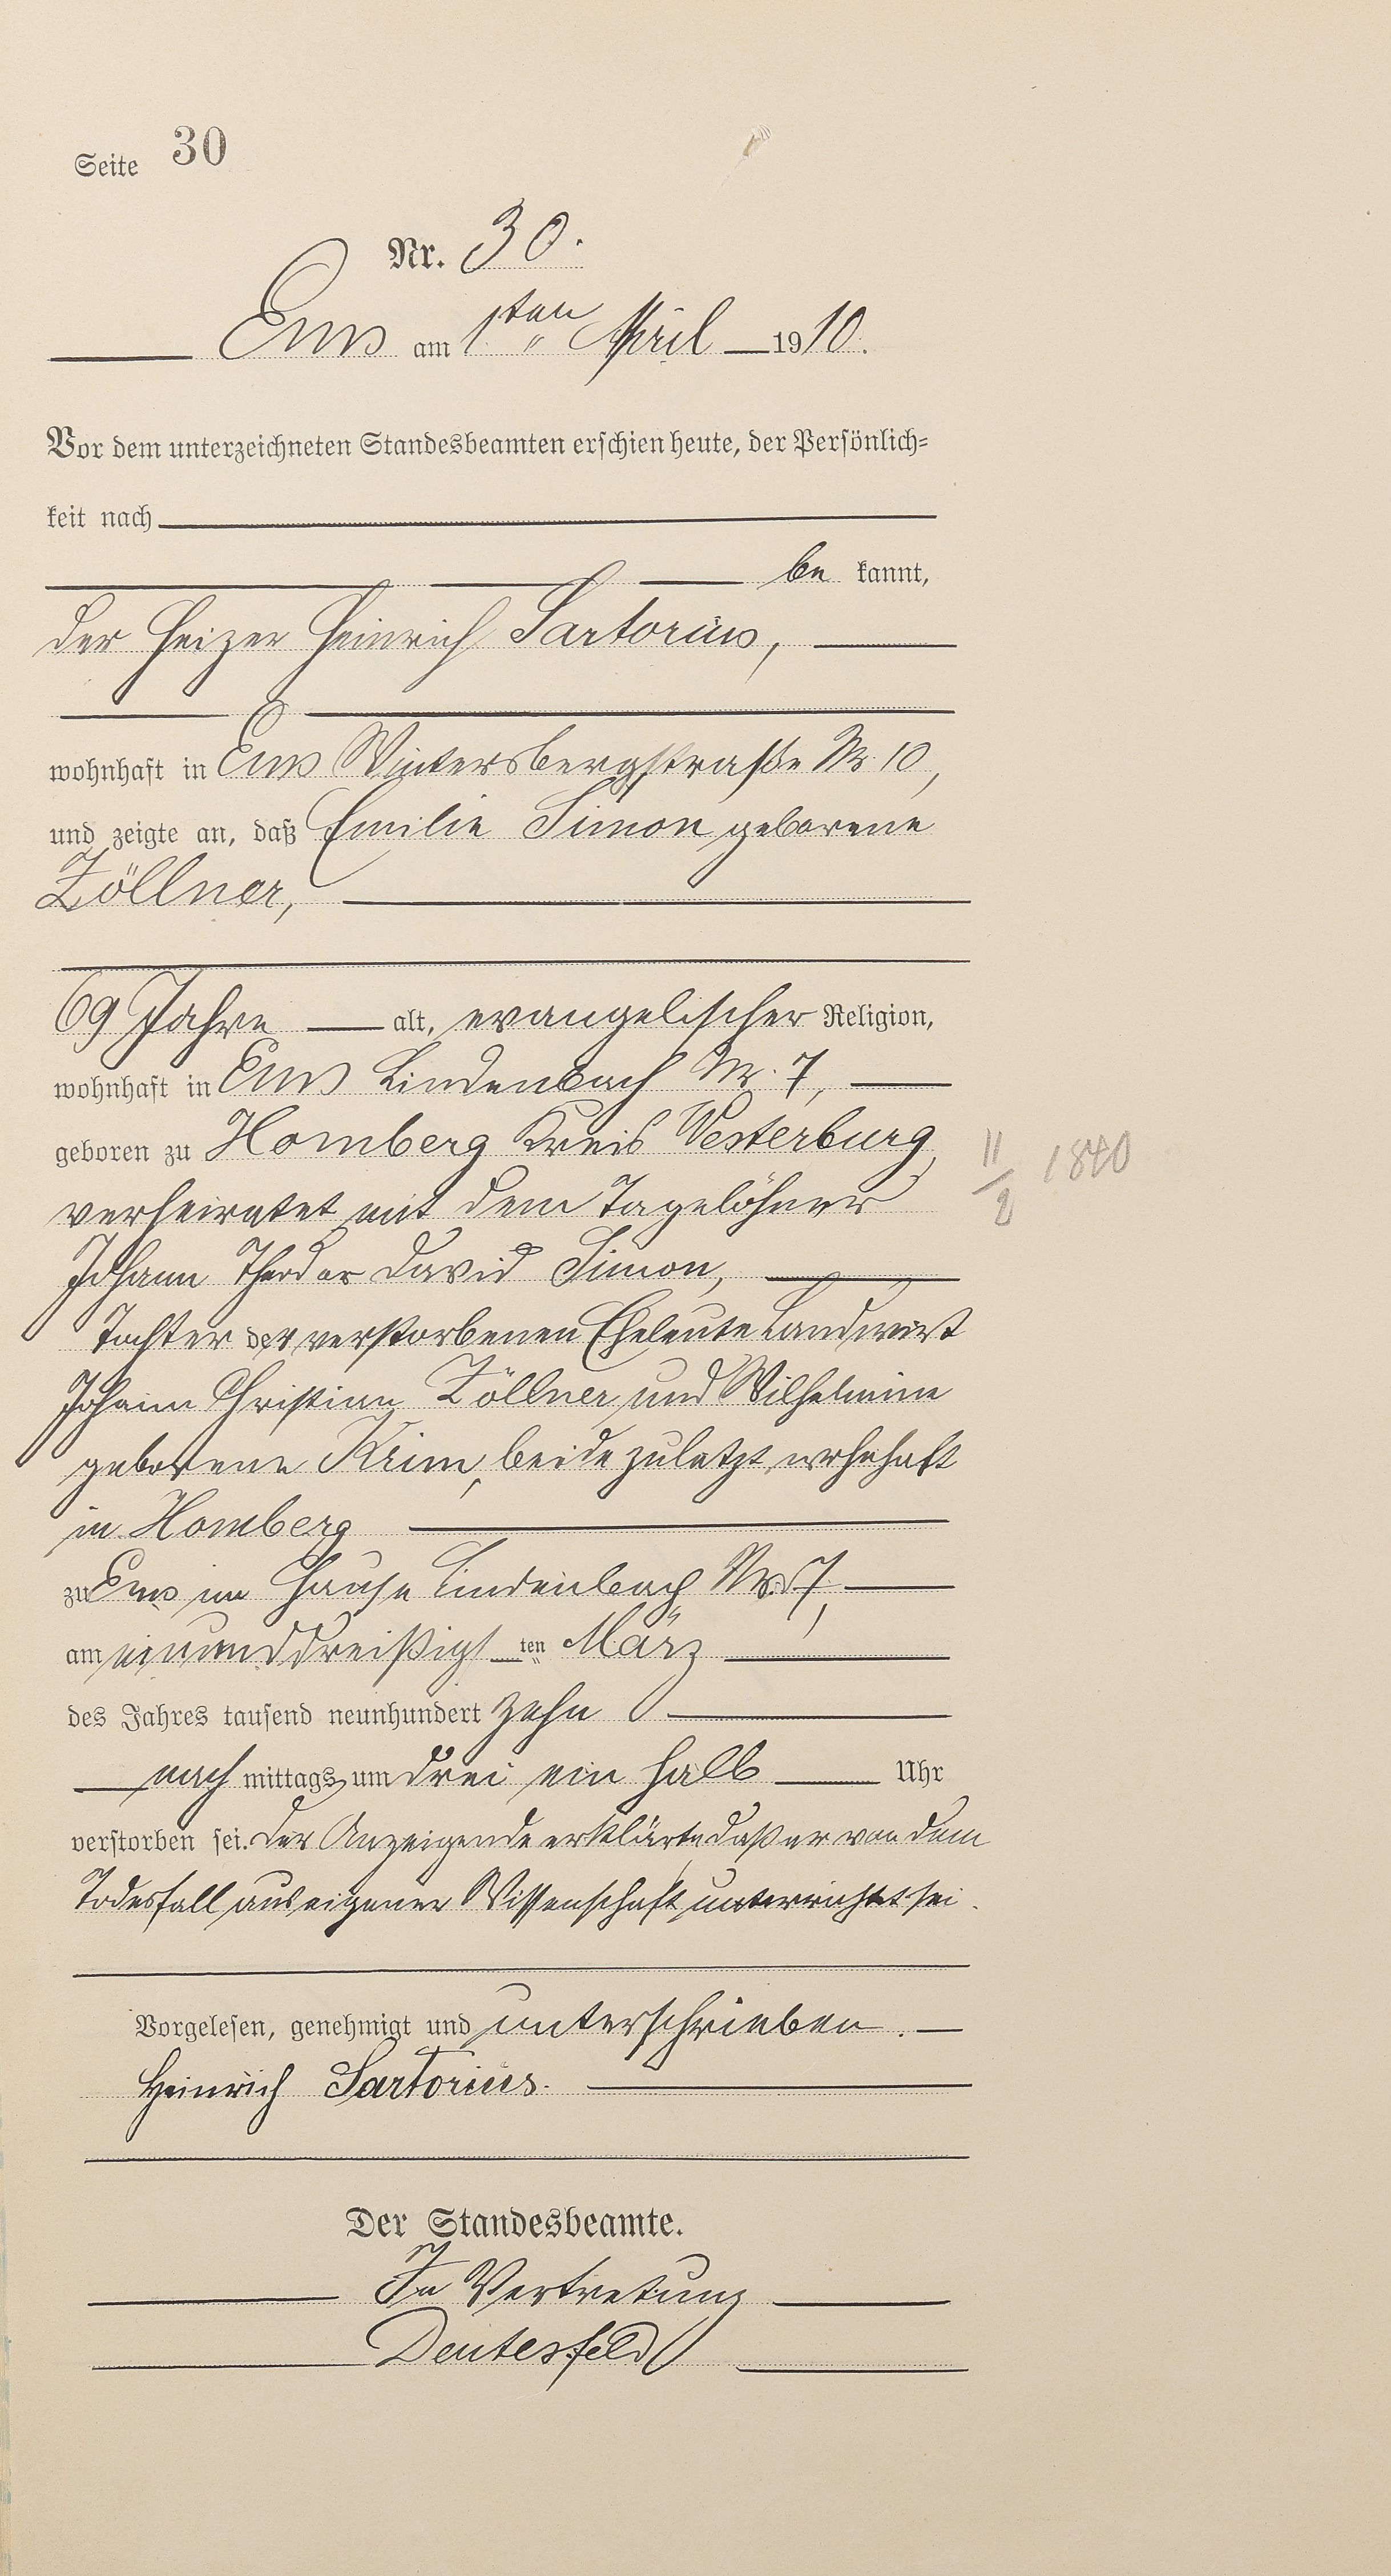 Seite 30
Nr. 30.
Ems am 1ten April 1910.
Vor dem unterzeichneten Standesbeamten erschien heute, der Persönlich=
keit nach
be kannt,
der Heizer Heinrich Sartorius,
wohnhaft in Ems Wintersbergstraße Nr. 10,
und zeigte an, daß Emilie Simon geborene
Zöllner,
69 Jahre alt, evangelischer Religion,
wohnhaft in Ems Lindenbach Nr. 7,
geboren zu Homberg Kreis Westerburg,
11/2 1840
verheiratet mit dem Tagelöhner
Johann Theodor David Simon,
Tochter der verstorbenen Eheleute Landwirt
Johann Christian Zöllner und Wilhelmine
geborene Krim, beide zuletzt wohnhaft
in Homberg
zu Ems im Hause Lindenbach Nr. 7,
am einunddreißigsten März
des Jahres tausend neunhundert zehn
nach mittags um drei ein halb Uhr
verstorben sei. Der Anzeigende erklärte daß er von dem
Todesfall aus eigener Wissenschaft unterrichtet sei.
Vorgelesen, genehmigt und unterschrieben.
Heinrich Sartorius.
Der Standesbeamte.
In Vertretung
Deutesfeld